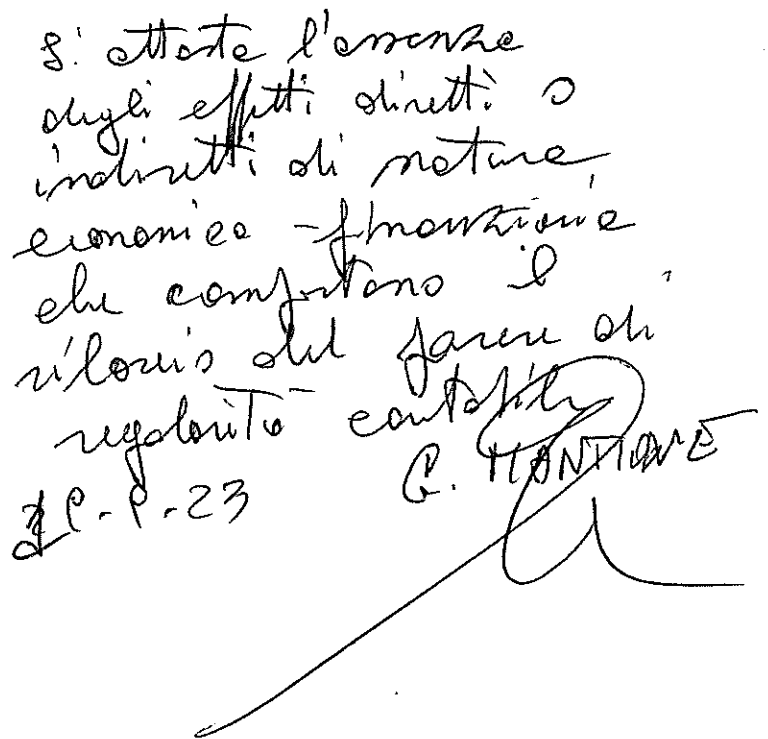 Si attesta l'assenza
degli effetti diretti o
indiretti di natura
economico - finanziaria
che comportano il
rilascio del parere di
regolarità contabile
G. MANTIONE